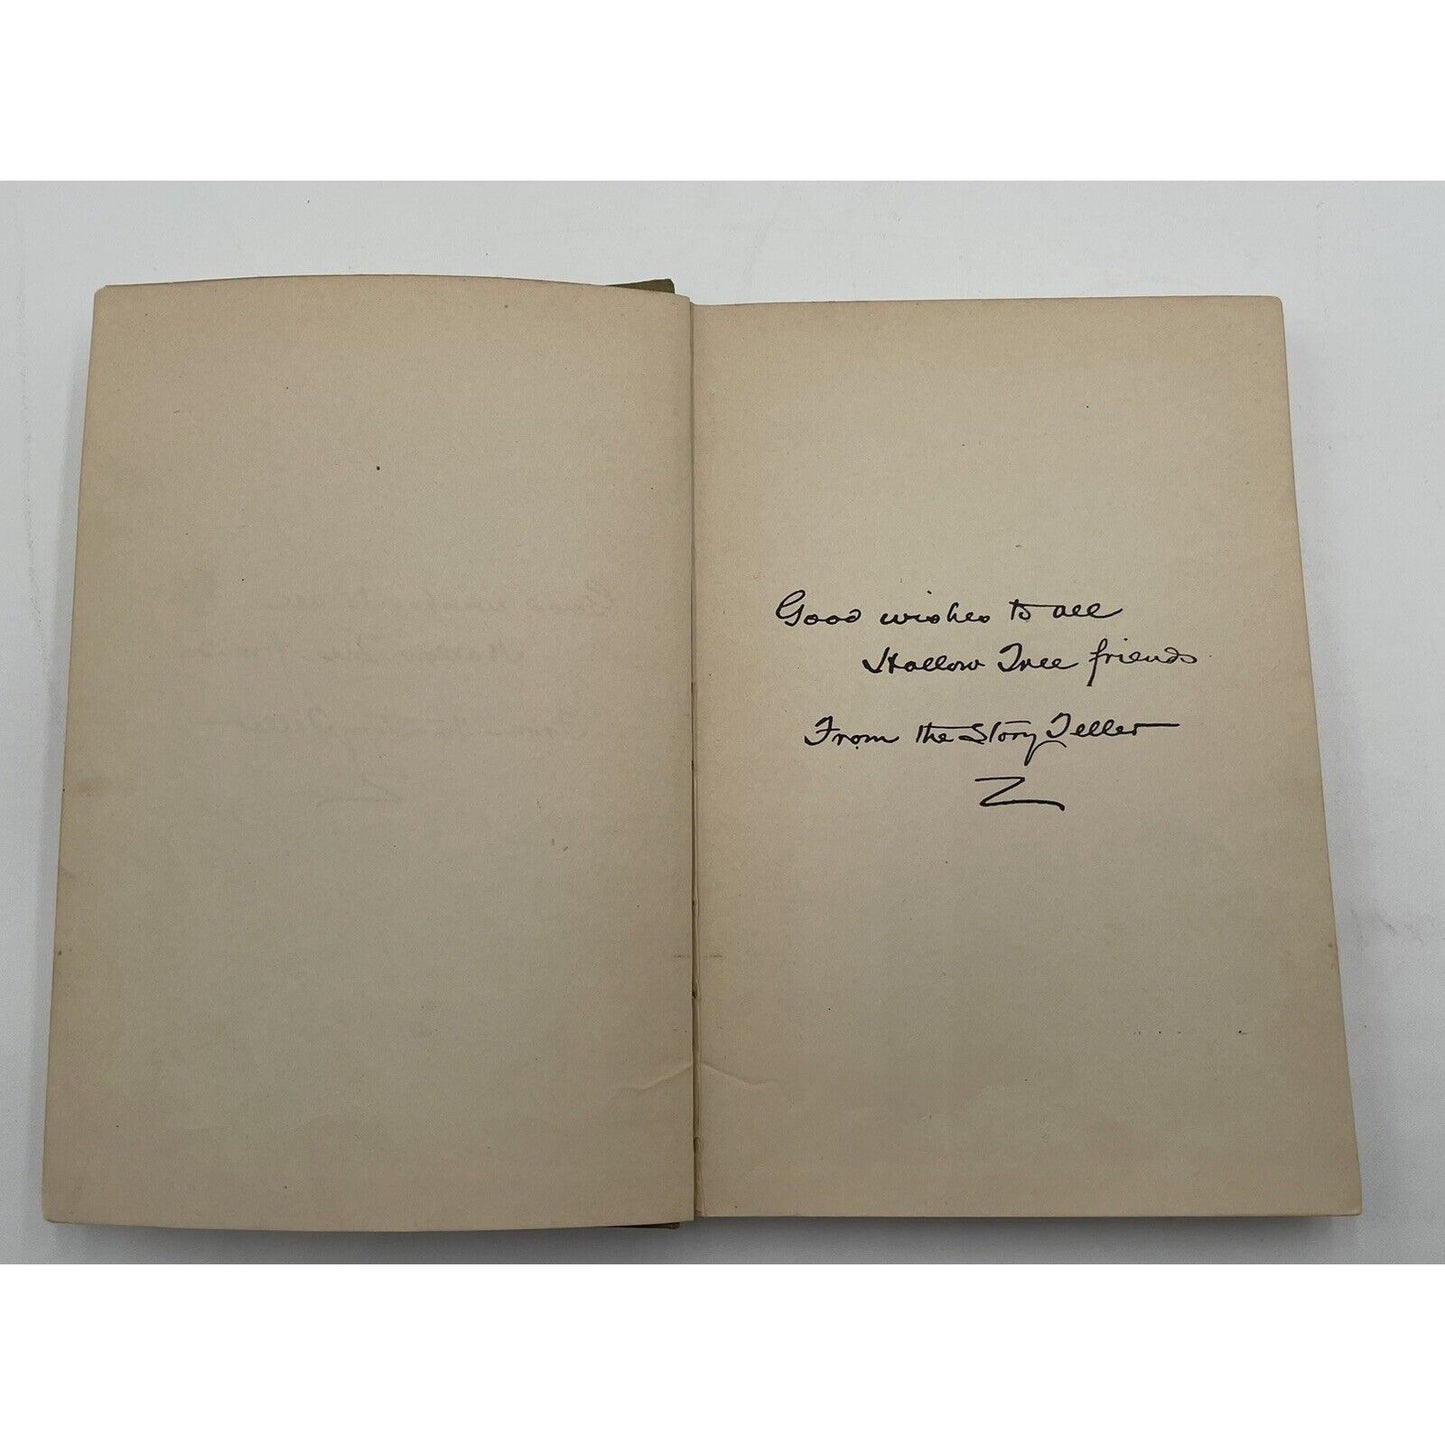 Good wishes to all
Hollow Tree friends
From the Story Teller